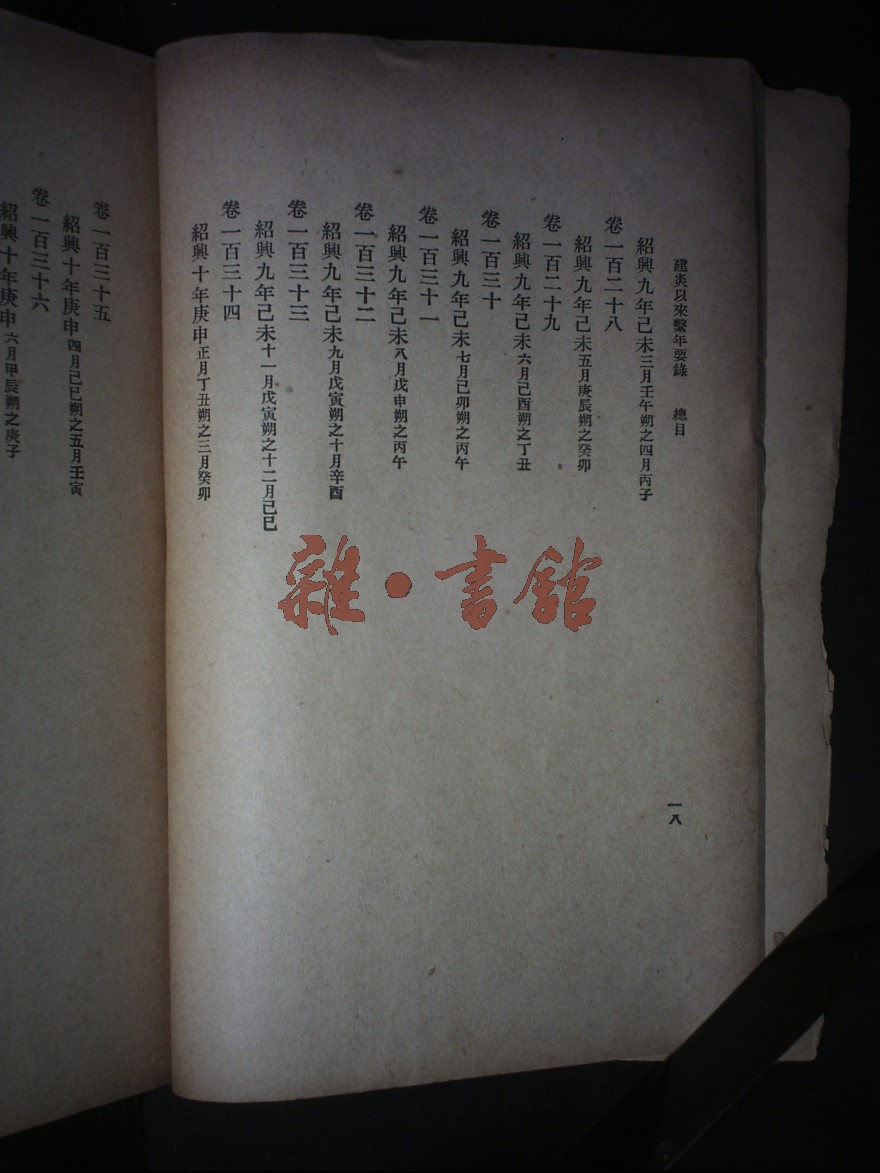 建炎以來繫年要錄 總目
一八
紹興九年己未三月壬午朔之四月丙子
卷一百二十八
紹興九年己未五月庚辰朔之癸卯
卷一百二十九
紹興九年己未六月己酉朔之丁丑
卷一百三十
紹興九年己未七月己卯朔之丙午
卷一百三十一
紹興九年己未八月戊申朔之丙午
卷一百三十二
紹興九年己未九月戊寅朔之十月辛酉
卷一百三十三
紹興九年己未十一月戊寅朔之十二月己巳
卷一百三十四
紹興十年庚申正月丁丑朔之三月癸卯
卷一百三十五
紹興十年庚申四月己巳朔之五月壬寅
卷一百三十六
紹興十年庚申六月甲辰朔之庚子
雜·書館